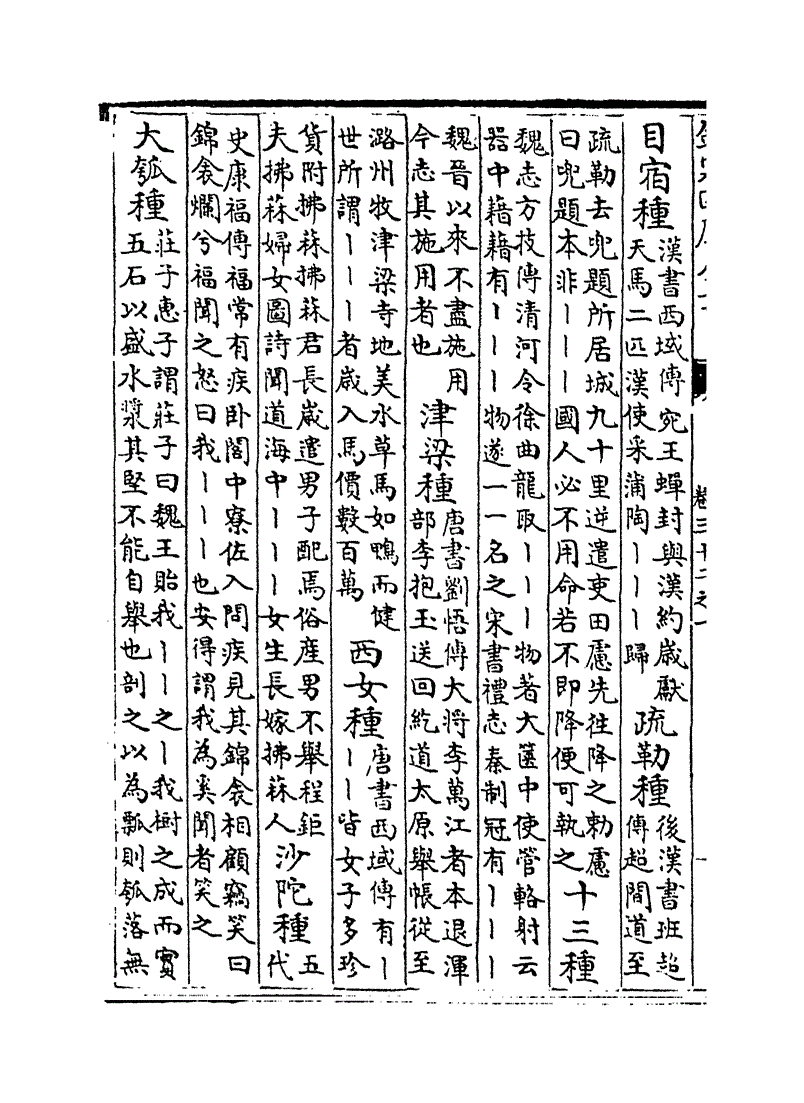 卷三十二之一
目宿種
漢書西域傳宛王蟬封與漢約歳獻
天馬二匹漢使采蒲陶丨丨丨歸
疏勒種
後漢書班超
傳超間道至
疏勒去兜題所居城九十里逆遣吏田慮先往降之勅慮
曰兜題本非丨丨丨國人必不用命若不即降便可執之
十三種
魏志方技傳清河令徐曲龍取丨丨丨物著大箧中使管輅射云
器中藉藉有丨丨丨物遂一一名之宋書禮志秦制冠有丨丨丨
魏晉以來不盡施用
今志其施用者也
津梁種
唐書劉悟傳大將李萬江者本退渾
部李抱玉送回紇道太原舉帳從至
潞州牧津梁寺地美水草馬如鴨而健
世所謂丨丨丨者歳入馬價數百萬
西女種
唐書西域傳有丨
丨丨皆女子多珍
貨附拂菻拂菻君長歳遣男子配焉俗産男不舉程鉅
夫拂菻婦女圖詩聞道海中丨丨丨女生長嫁拂菻人
沙陀種
五
代
史康福傳福常有疾卧閤中寮佐入問疾見其錦衾相顧竊笑曰
錦衾爛兮福聞之怒曰我丨丨丨也安得謂我為奚聞者笑之
大瓠種
莊子惠子謂莊子曰魏王貽我丨丨之丨我樹之成而實
五石以盛水漿其堅不能自舉也剖之以為瓢則瓠落無